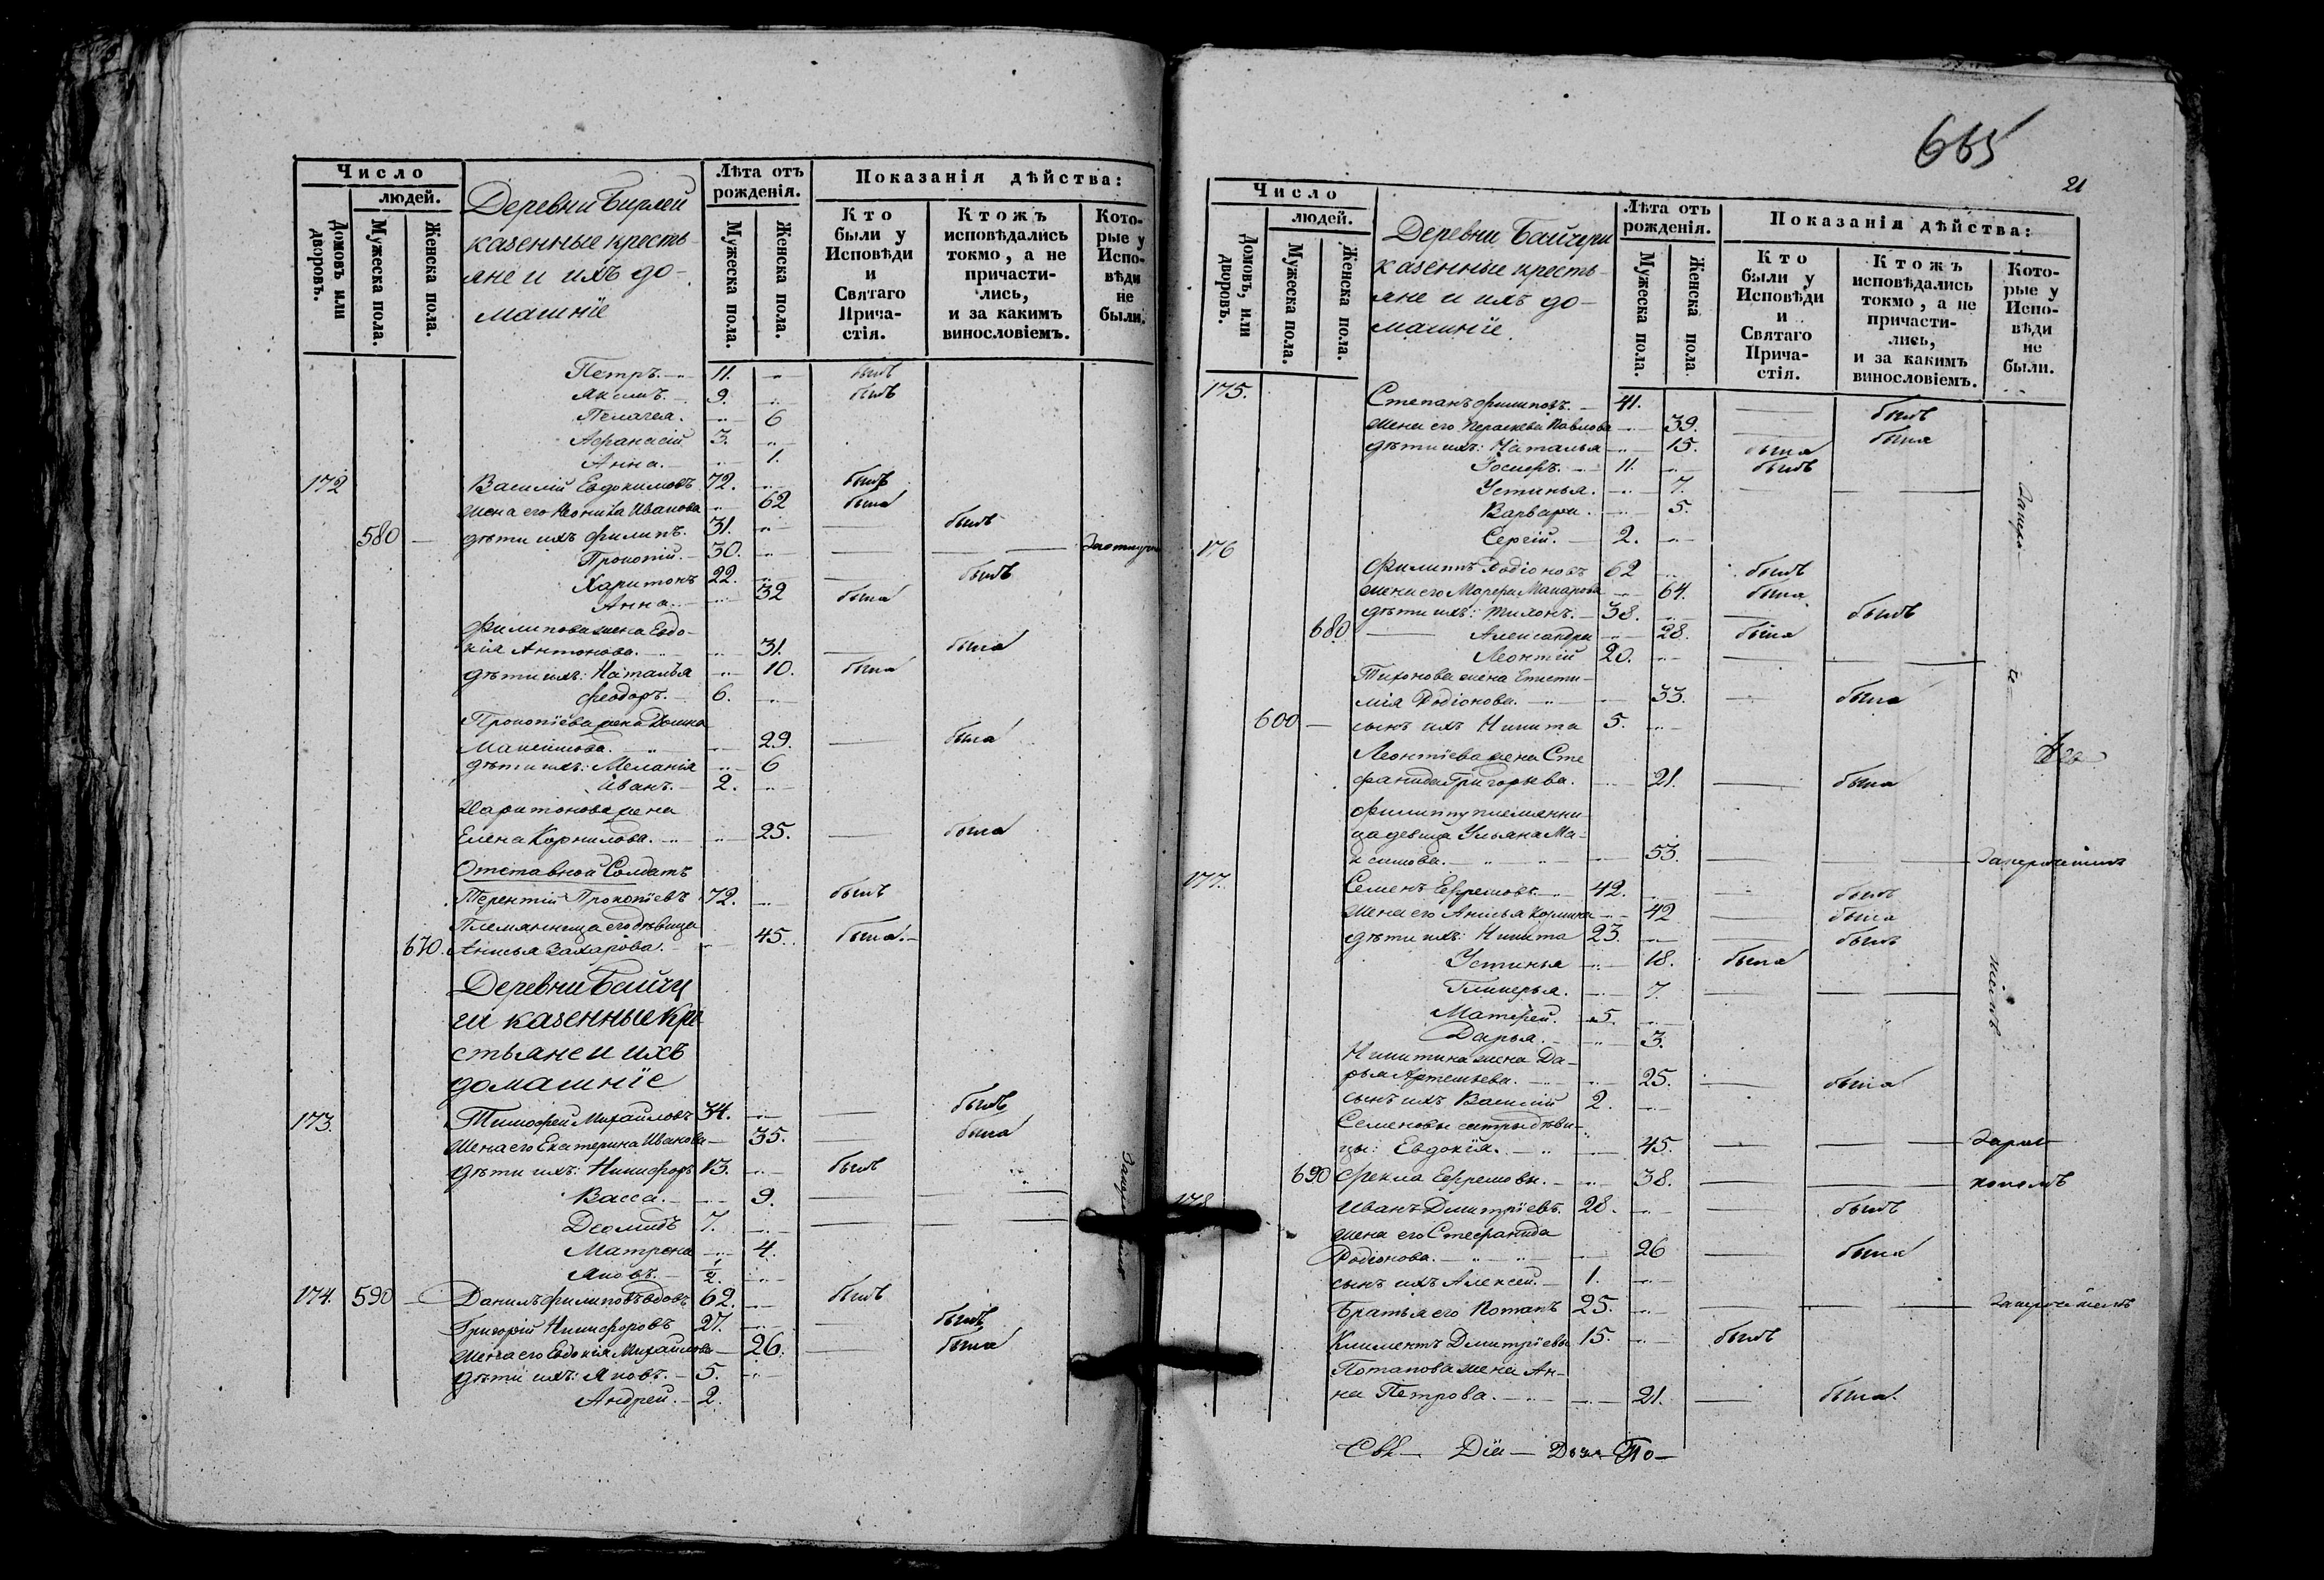 Число
людей.
Домовъ или дворовъ.
Мужеска пола.
Женска пола.
Деревни Бирлей
казенные кресть-
яне и ихъ до-
машніе
Лѣта отъ рожденія.
Мужеска пола.
Женска пола.
Показанія дѣйства:
Кто были у Исповѣди и Святаго Прича-стія.
Ктожъ исповѣдались токмо, а не причасти-лись, и за какимъ винословіемъ.
Кото-рые у Испо-вѣди не были.
Петръ. 11. былъ
9. былъ
Пелагея. 6
Афанасій 3.
Анна. 1.
172 Василій Евдокимовъ 72. былъ
жена его Иванова 62 была
580 дѣти ихъ Филипъ. 31. былъ
Прокопій. 30.
Харитонъ 22. былъ
Анна. 32 была
Филипова жена Евдо-
кія Антонова. 31. была
дѣти ихъ: Наталья 10. была
Феодоръ. 6.
Прокопіева жена Домна
Максимова. 29. была
дѣти ихъ: Меланія 6
Иванъ. 2.
Харитонова жена
Елена Корнилова. 25. была
Отставной Солдатъ
Терентій Прокопіевъ 72. былъ
Племянница его дѣвица
670. Анисья Захарова. 45. была.
Деревни Байчу
ги казенные кре
стьяне и ихъ
домашніе
173. Тимофей Михайловъ 34. былъ
жена его Екатерина Иванова 35. была
дѣти ихъ: Никифоръ 13. былъ
Васса. 9.
Деомидъ 7.
Матрена 4.
Яковъ. 1/2.
174. 590 Данилъ Филиповъ вдовъ 62. былъ
Григорій Никифоровъ 27. былъ
жена его Евдокія Михайлова 26. была
дѣти ихъ: Яковъ. 5.
Андрей. 2.
665
21
Число
людей.
Домовъ, или дворовъ.
Мужеска пола.
Женска пола.
Деревни
казенные кресть-
яне и ихъ до-
машніе.
Лѣта отъ рожденія.
Мужеска пола.
Женска пола
Показанія дѣйства:
Кто были у Исповѣди и Святаго Прича-стія.
Ктожъ исповѣдались токмо, а не причасти-лись, и за какимъ винословіемъ.
Кото-рые у Испо-вѣди не были.
175. Степанъ Филиповъ. 41. былъ
жена его Параскева Павлова 39. была
дѣти ихъ: Наталья 15. была
Іосифъ. 11. былъ
Устинья. 7.
Варвара. 5.
Сергій. 2.
176 Филиппъ Родіоновъ 62 былъ
жена его Макарова 64. была
дѣти ихъ: Тихонъ. 38. былъ
680 Александра 28. была
Леонтій 20.
Тихонова жена Еписти-
мія Родіонова. 33. была
600 сынъ ихъ Никита 5.
Леонтіева жена Сте
фанида Григорьева. 21. была
Филиппу племянни-
ца девица Ульяна Ма-
ксимова. 53.
177. Семенъ Ефремовъ. 42. былъ
жена его Анисья 42 была
дѣти ихъ: Никита 23. былъ
Устинья 18. была
Гликерья. 7.
Матфей. 5.
Дарья. 3.
Никитина жена Да-
рья Артемьева. 25. была
сынъ ихъ Василій 2.
Семеновы сестры дѣви-
цы: Евдокія. 45.
690 Фекла Ефремовы. 38.
178 Иванъ Дмитріевъ. 28. былъ
жена его Стефанида
Родіонова. 26 была
сынъ ихъ Алексей. 1.
Братья его Потапъ 25.
Климентъ Дмитріевы 15. былъ
Потапова жена Ан-
на Петрова. 21. была.